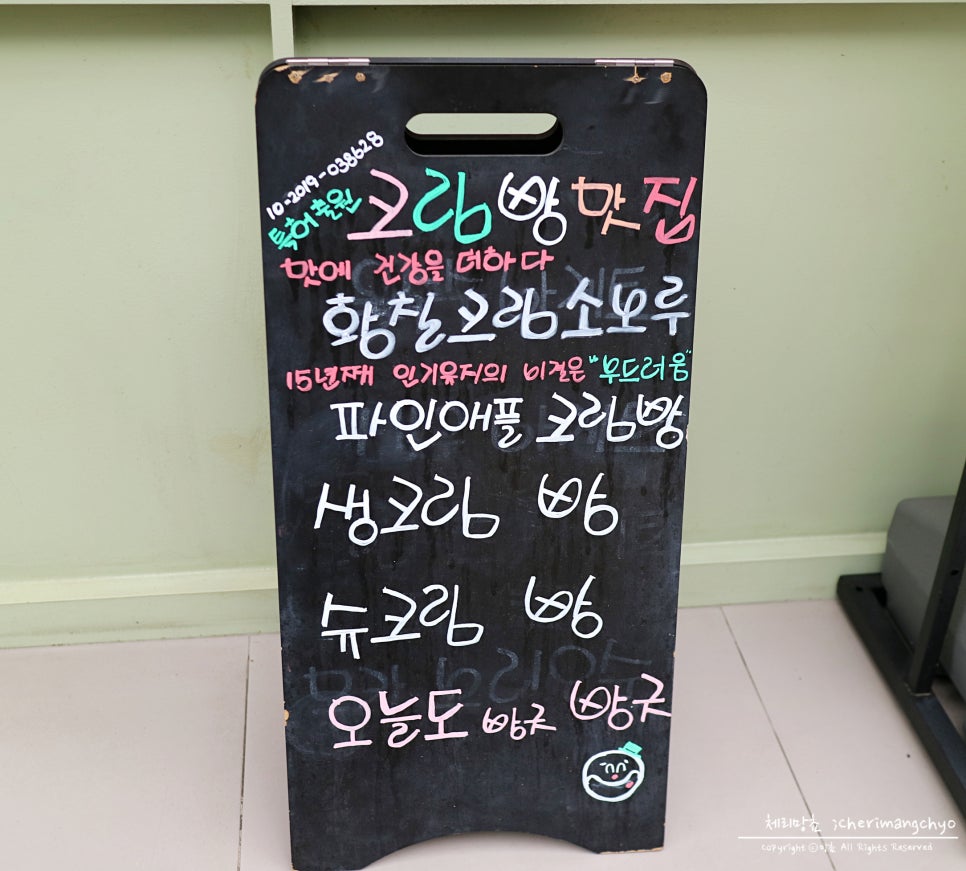 10-2019-038628
특허출원
크림빵 맛집
맛에 건강을 더하다
황칠크림소보루
15년째 인기유지의 비결은 "부드러움"
파인애플 크림빵
생크림 빵
슈크림 빵
오늘도 빵굿 빵굿
체리망쵸 ;cherimangchyo
Copyright ⓒ망쵸 All Rights Reserved